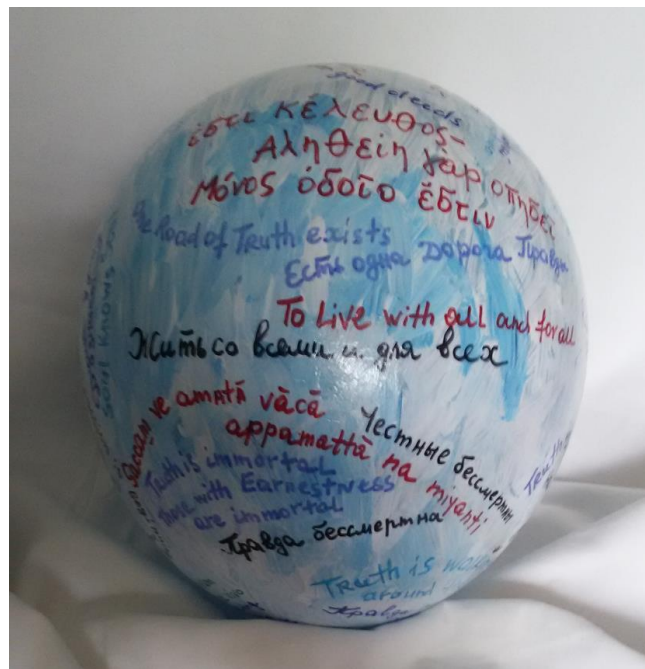 good deeds
ἐστι κέλευθος-
Αληθείη γὰρ οπηδεῖ
Μόνος ὁδοῖο ἔστιν
The Road of Truth exists
Есть одна Дорога Правды
To Live with all and for all
Жить со всеми и для всех
soul knows
ve amatā vācā
appamattā na miyanti
Честные бессмертны
Truth is immortal
Those with Earnestness
are immortal
Правда бессмертна
Truth
Truth is
around
Правда